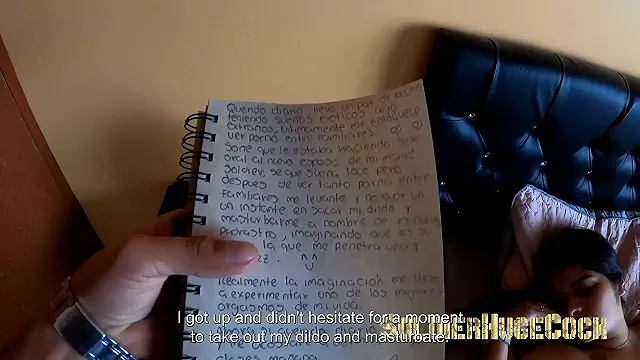 Querido diario llevo un par de noches
teniendo sueños eroticos muy
extraños, ultimamente me enloquece
ver porno entre familiares.
Soñe que le estaba haciendo sexo
oral al nuevo esposo de mi mamá
Soldier, se que suena loco pero
despues de ver tanto porno entre
familiares me levante y no dude
un instante en sacar mi dildo
masturbarme a nombre de mi
padrastro, imaginando que es su
la que me penetra una y
ez.
Realmente la imaginación me llevo
a experimentar uno de los mejores
orgasmos de mi vida.
clases mañana
I got up and didn't hesitate for a moment
to take out my dildo and masturbate.
SOLDIERHUGECOCK